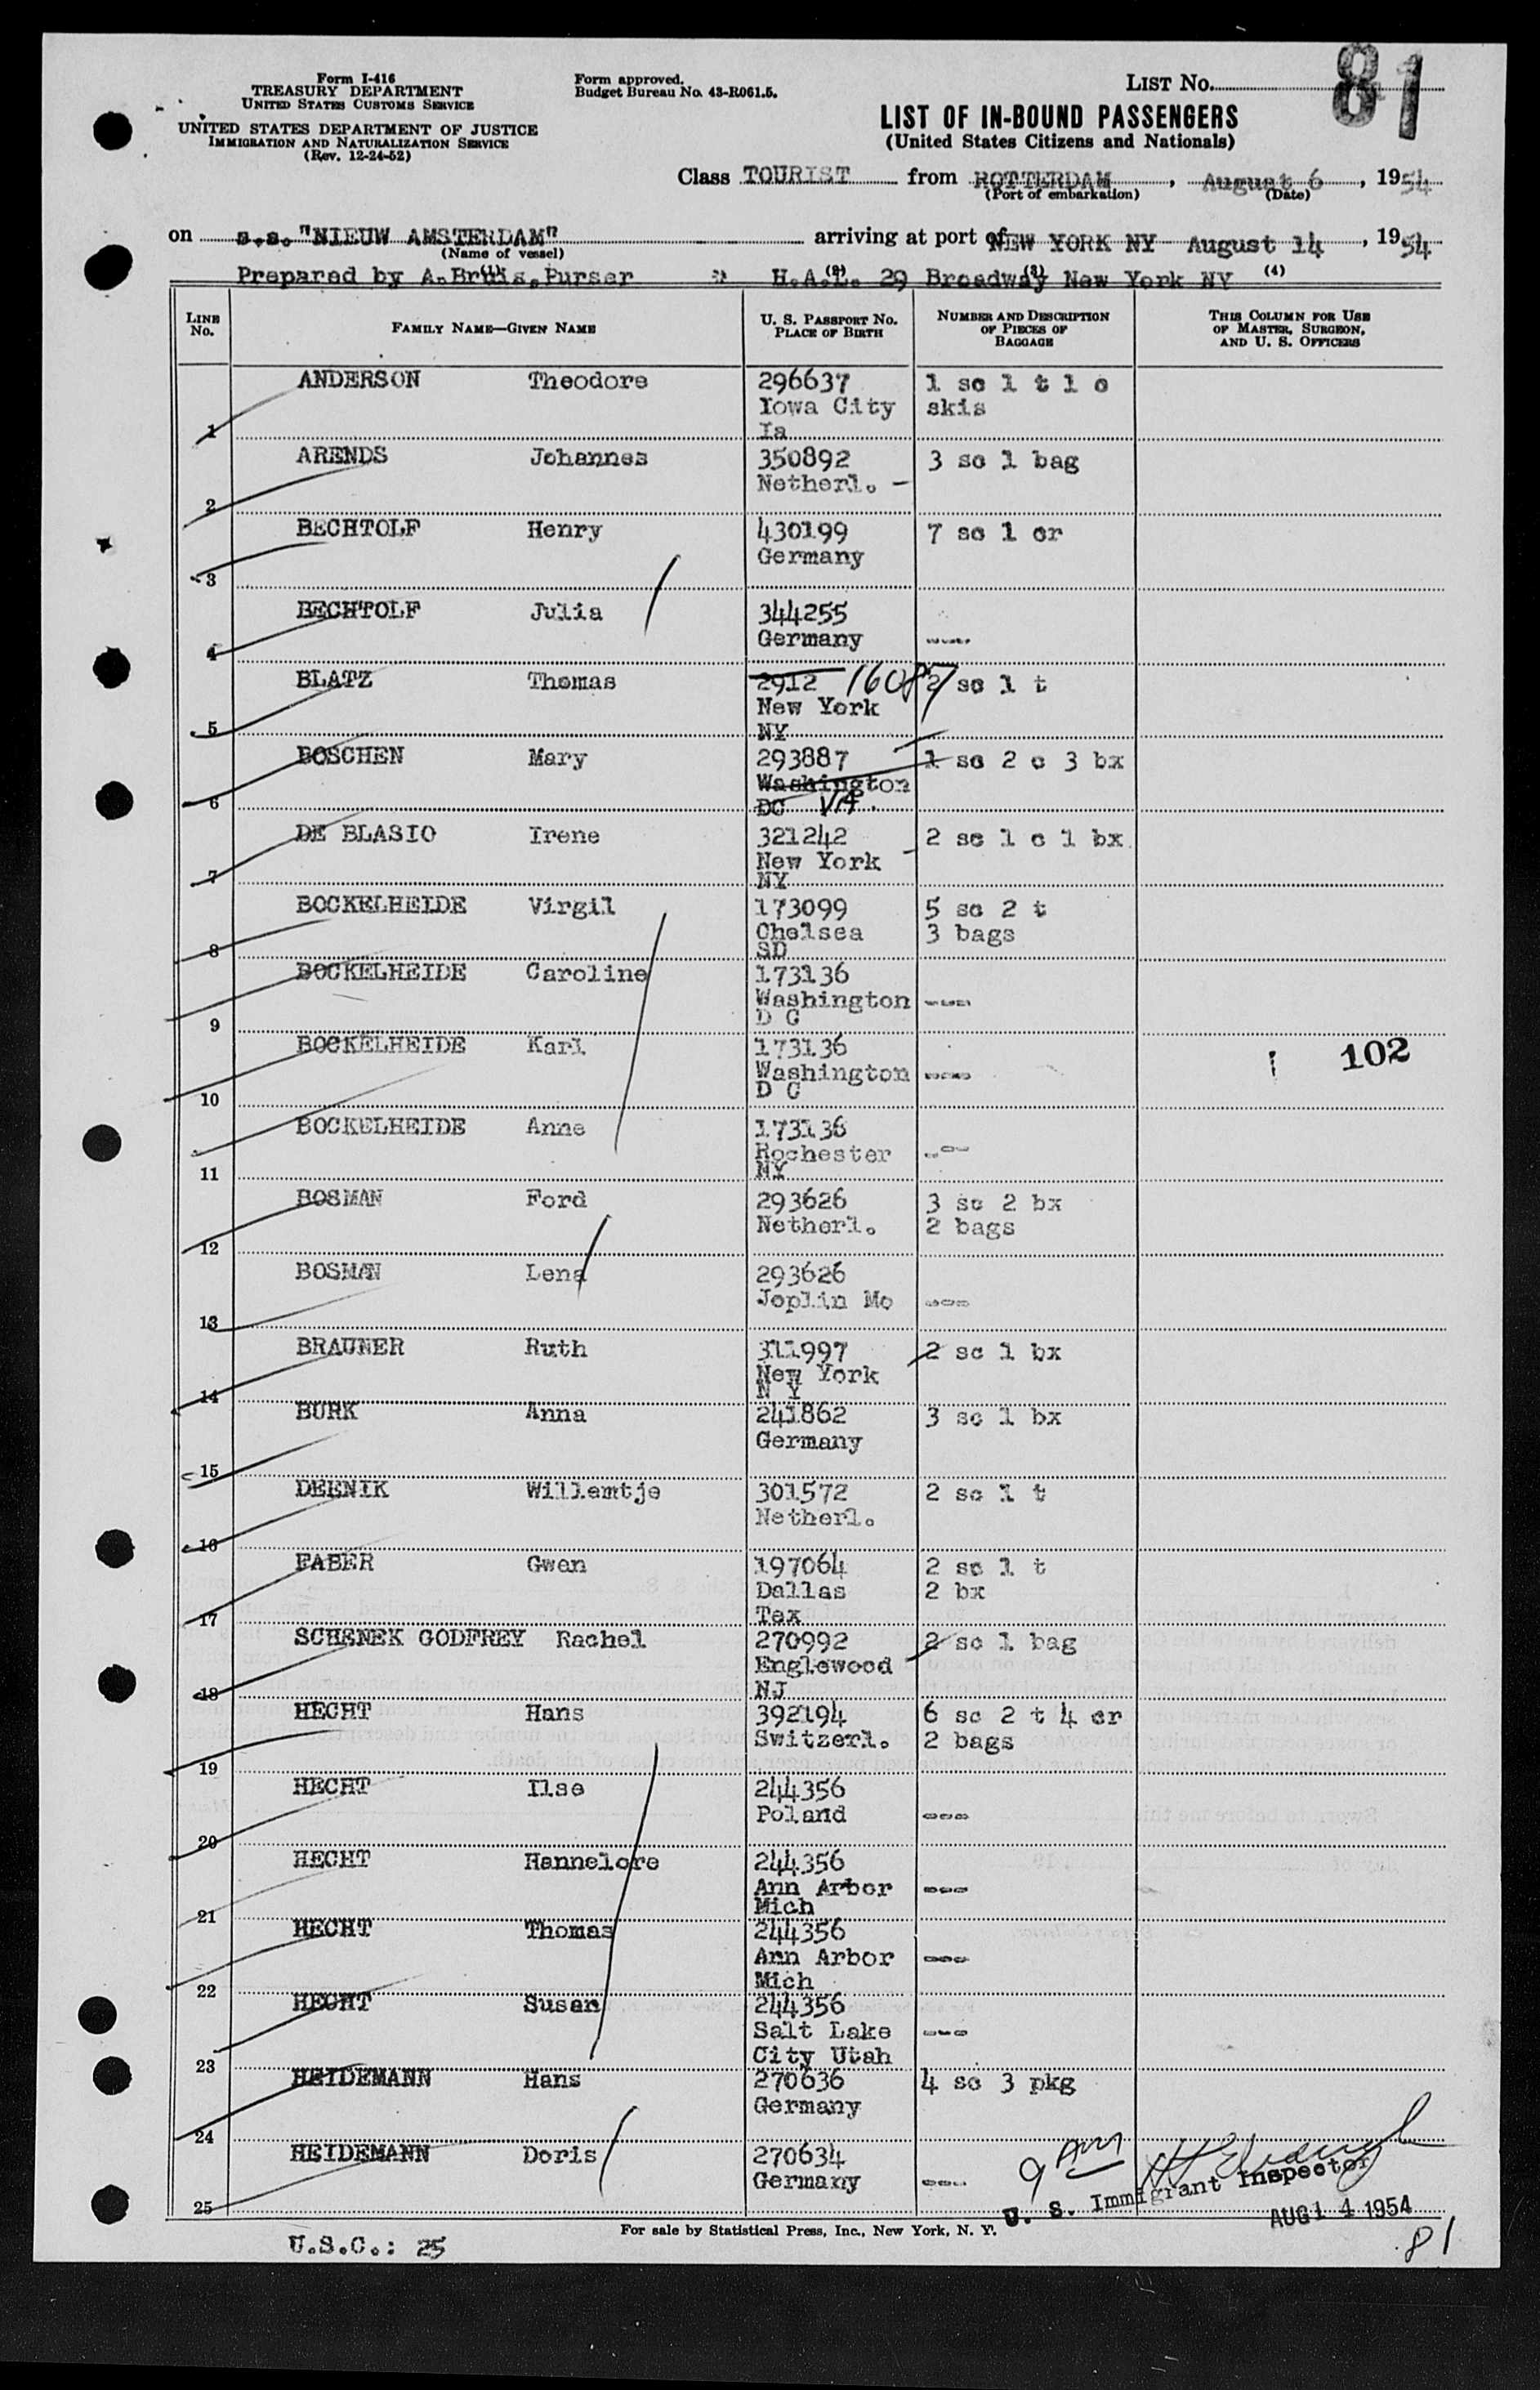 Form I-416
TREASURY DEPARTMENT
UNITED STATES CUSTOMS SERVICE
UNITED STATES DEPARTMENT OF JUSTICE
IMMIGRATION AND NATURALIZATION SERVICE
(Rev. 12-24-52)
Form approved.
Budget Bureau No. 43-R061.5.
LIST No. 81
LIST OF IN-BOUND PASSENGERS
(United States Citizens and Nationals)
Class TOURIST from ROTTERDAM, August 6, 1954
(Port of embarkation) (Date)
on s.s. "NIEUW AMSTERDAM" arriving at port of NEW YORK NY August 14, 1954
(Name of vessel)
Prepared by A. Bruis, Purser H.A.L. 29 Broadway New York NY
(1) (2) (3) (4)
LINE No. FAMILY NAME—GIVEN NAME U. S. PASSPORT No. PLACE OF BIRTH NUMBER AND DESCRIPTION OF PIECES OF BAGGAGE THIS COLUMN FOR USE OF MASTER, SURGEON, AND U. S. OFFICERS
ANDERSON Theodore 296637 1 sc 1 t 1 c
Iowa City skis
1 Ia
ARENDS Johannes 350892 3 sc 1 bag
Netherl. -
2
BECHTOLF Henry 430199 7 sc 1 cr
Germany
3
BECHTOLF Julia 344255
Germany ----
4
BLATZ Thomas 2912 16087 2 sc 1 t
New York
5 NY
BOSCHEN Mary 293887 1 sc 2 c 3 bx
Washington
6 DC VA.
DE BLASIO Irene 321242 2 sc 1 c 1 bx
New York
7 NY
BOCKELHEIDE Virgil 173099 5 sc 2 t
Chelsea 3 bags
8 SD
BOCKELHEIDE Caroline 173136
Washington ----
9 D C
BOCKELHEIDE Karl 173136 102
Washington ----
10 D C
BOCKELHEIDE Anne 173136
Rochester ---
11 NY
BOSMAN Ford 293626 3 sc 2 bx
Netherl. 2 bags
12
BOSMAN Lena 293626
Joplin Mo ---
13
BRAUNER Ruth 311997 2 sc 1 bx
New York
14 N Y
BURK Anna 241862 3 sc 1 bx
Germany
15
DEENIK Willemtje 301572 2 sc 1 t
Netherl.
16
FABER Gwen 197064 2 sc 1 t
Dallas 2 bx
17 Tex
SCHENEK GODFREY Rachel 270992 2 sc 1 bag
Englewood
18 NJ
HECHT Hans 392194 6 sc 2 t 4 cr
Switzerl. 2 bags
19
HECHT Ilse 244356
Poland ---
20
HECHT Hannelore 244356
Ann Arbor ---
21 Mich
HECHT Thomas 244356
Ann Arbor ---
22 Mich
HECHT Susan 244356
Salt Lake ---
23 City Utah
HEIDEMANN Hans 270636 4 sc 3 pkg
Germany
24
HEIDEMANN Doris 270634
Germany ---
25
9 AM
U. S. Immigrant Inspector
AUG 14 1954
For sale by Statistical Press, Inc., New York, N. Y.
U.S.C.: 25
81